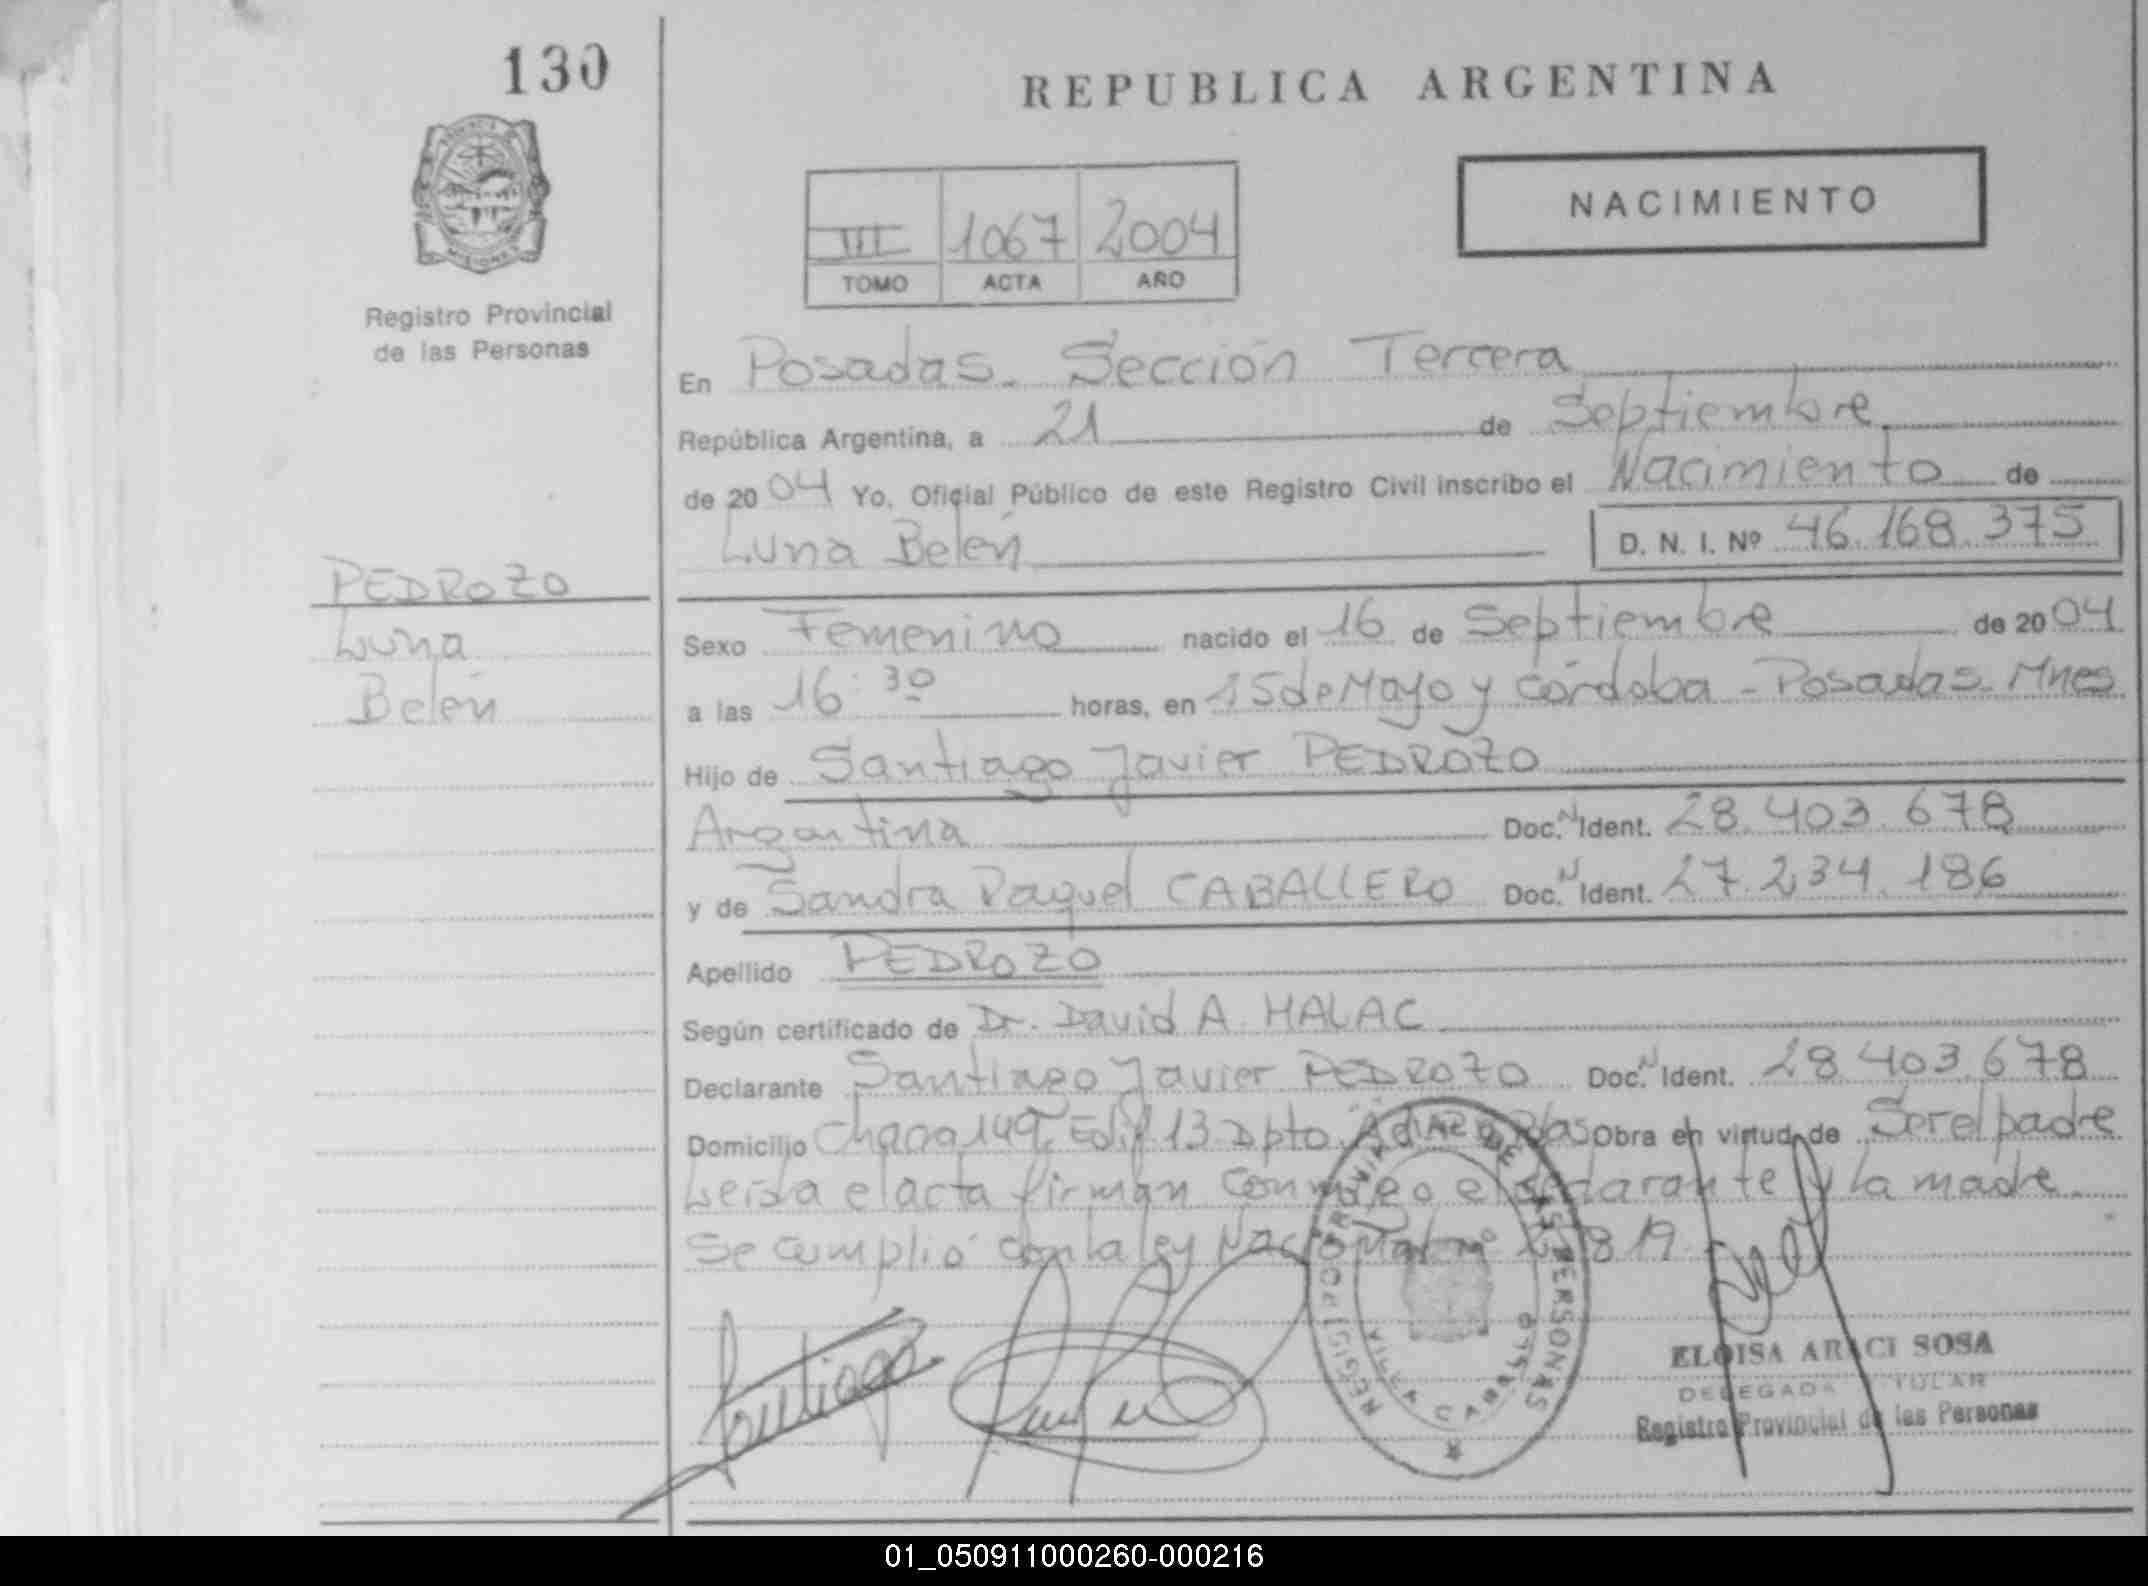 130
REPUBLICA ARGENTINA
NACIMIENTO
III 1067 2004
TOMO ACTA AÑO
Registro Provincial
de las Personas
En Posadas. Sección Tercera
República Argentina, a 21 de Septiembre
de 2004 Yo, Oficial Público de este Registro Civil inscribo el Nacimiento de
Luna Belén D. N. I. Nº 46.168.375
PEDROZO
Luna
Belén
Sexo Femenino nacido el 16 de Septiembre de 2004
a las 16:30 horas, en 15 de Mayo y Córdoba - Posadas. Mnes
Hijo de Santiago Javier PEDROZO
Argentina Doc. N Ident. 28.403.678
y de Sandra Raquel CABALLERO Doc. N Ident. 27.234.186
Apellido PEDROZO
Según certificado de Dr. David A. HALAC
Declarante Santiago Javier PEDROZO Doc. N Ident. 28.403.678
Domicilio Chacra 149, Edif 13 Dpto. A Obra en virtud de Ser el padre
Leída el acta firman conmigo el declarante y la madre
Se cumplió con la ley Nacional nº 25819
REGISTRO PROVINCIAL DE LAS PERSONAS
VILLA CABELLO
Santiago
ELOISA ARACI SOSA
DELEGADA TITULAR
Registro Provincial de las Personas
01_050911000260-000216